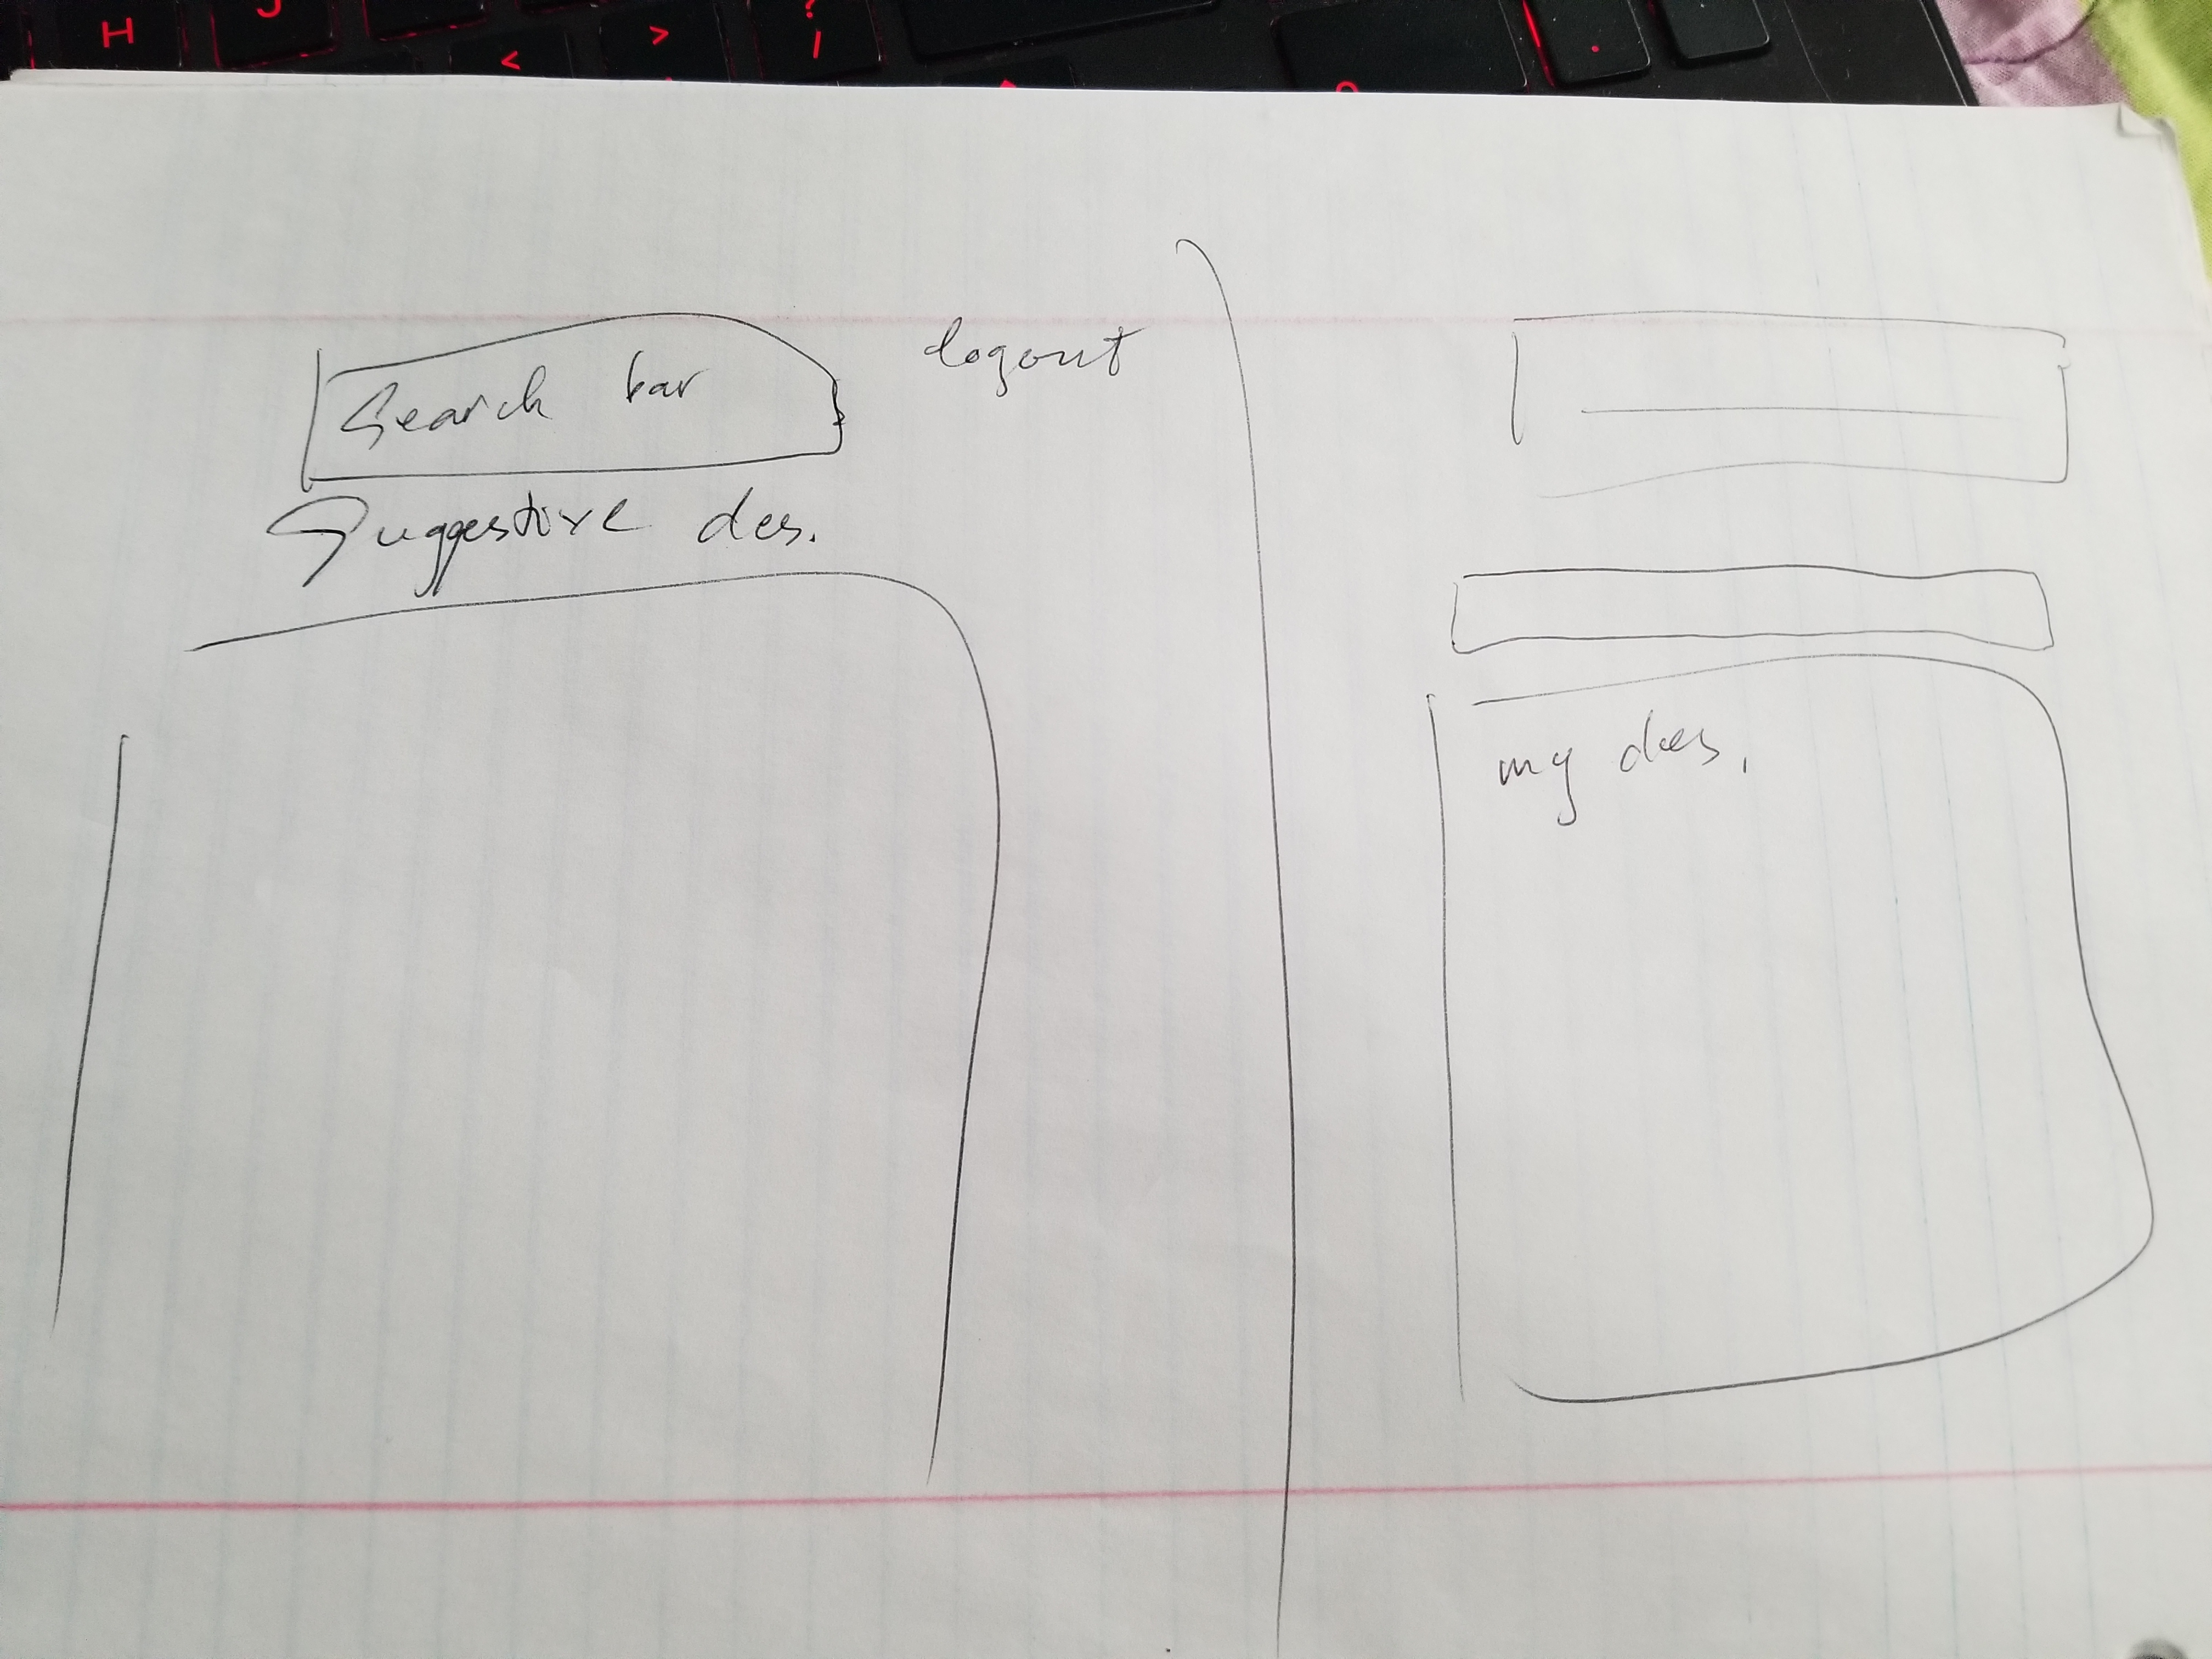 H J < > ? /
Search bar
logout
Suggestive des.
my des.